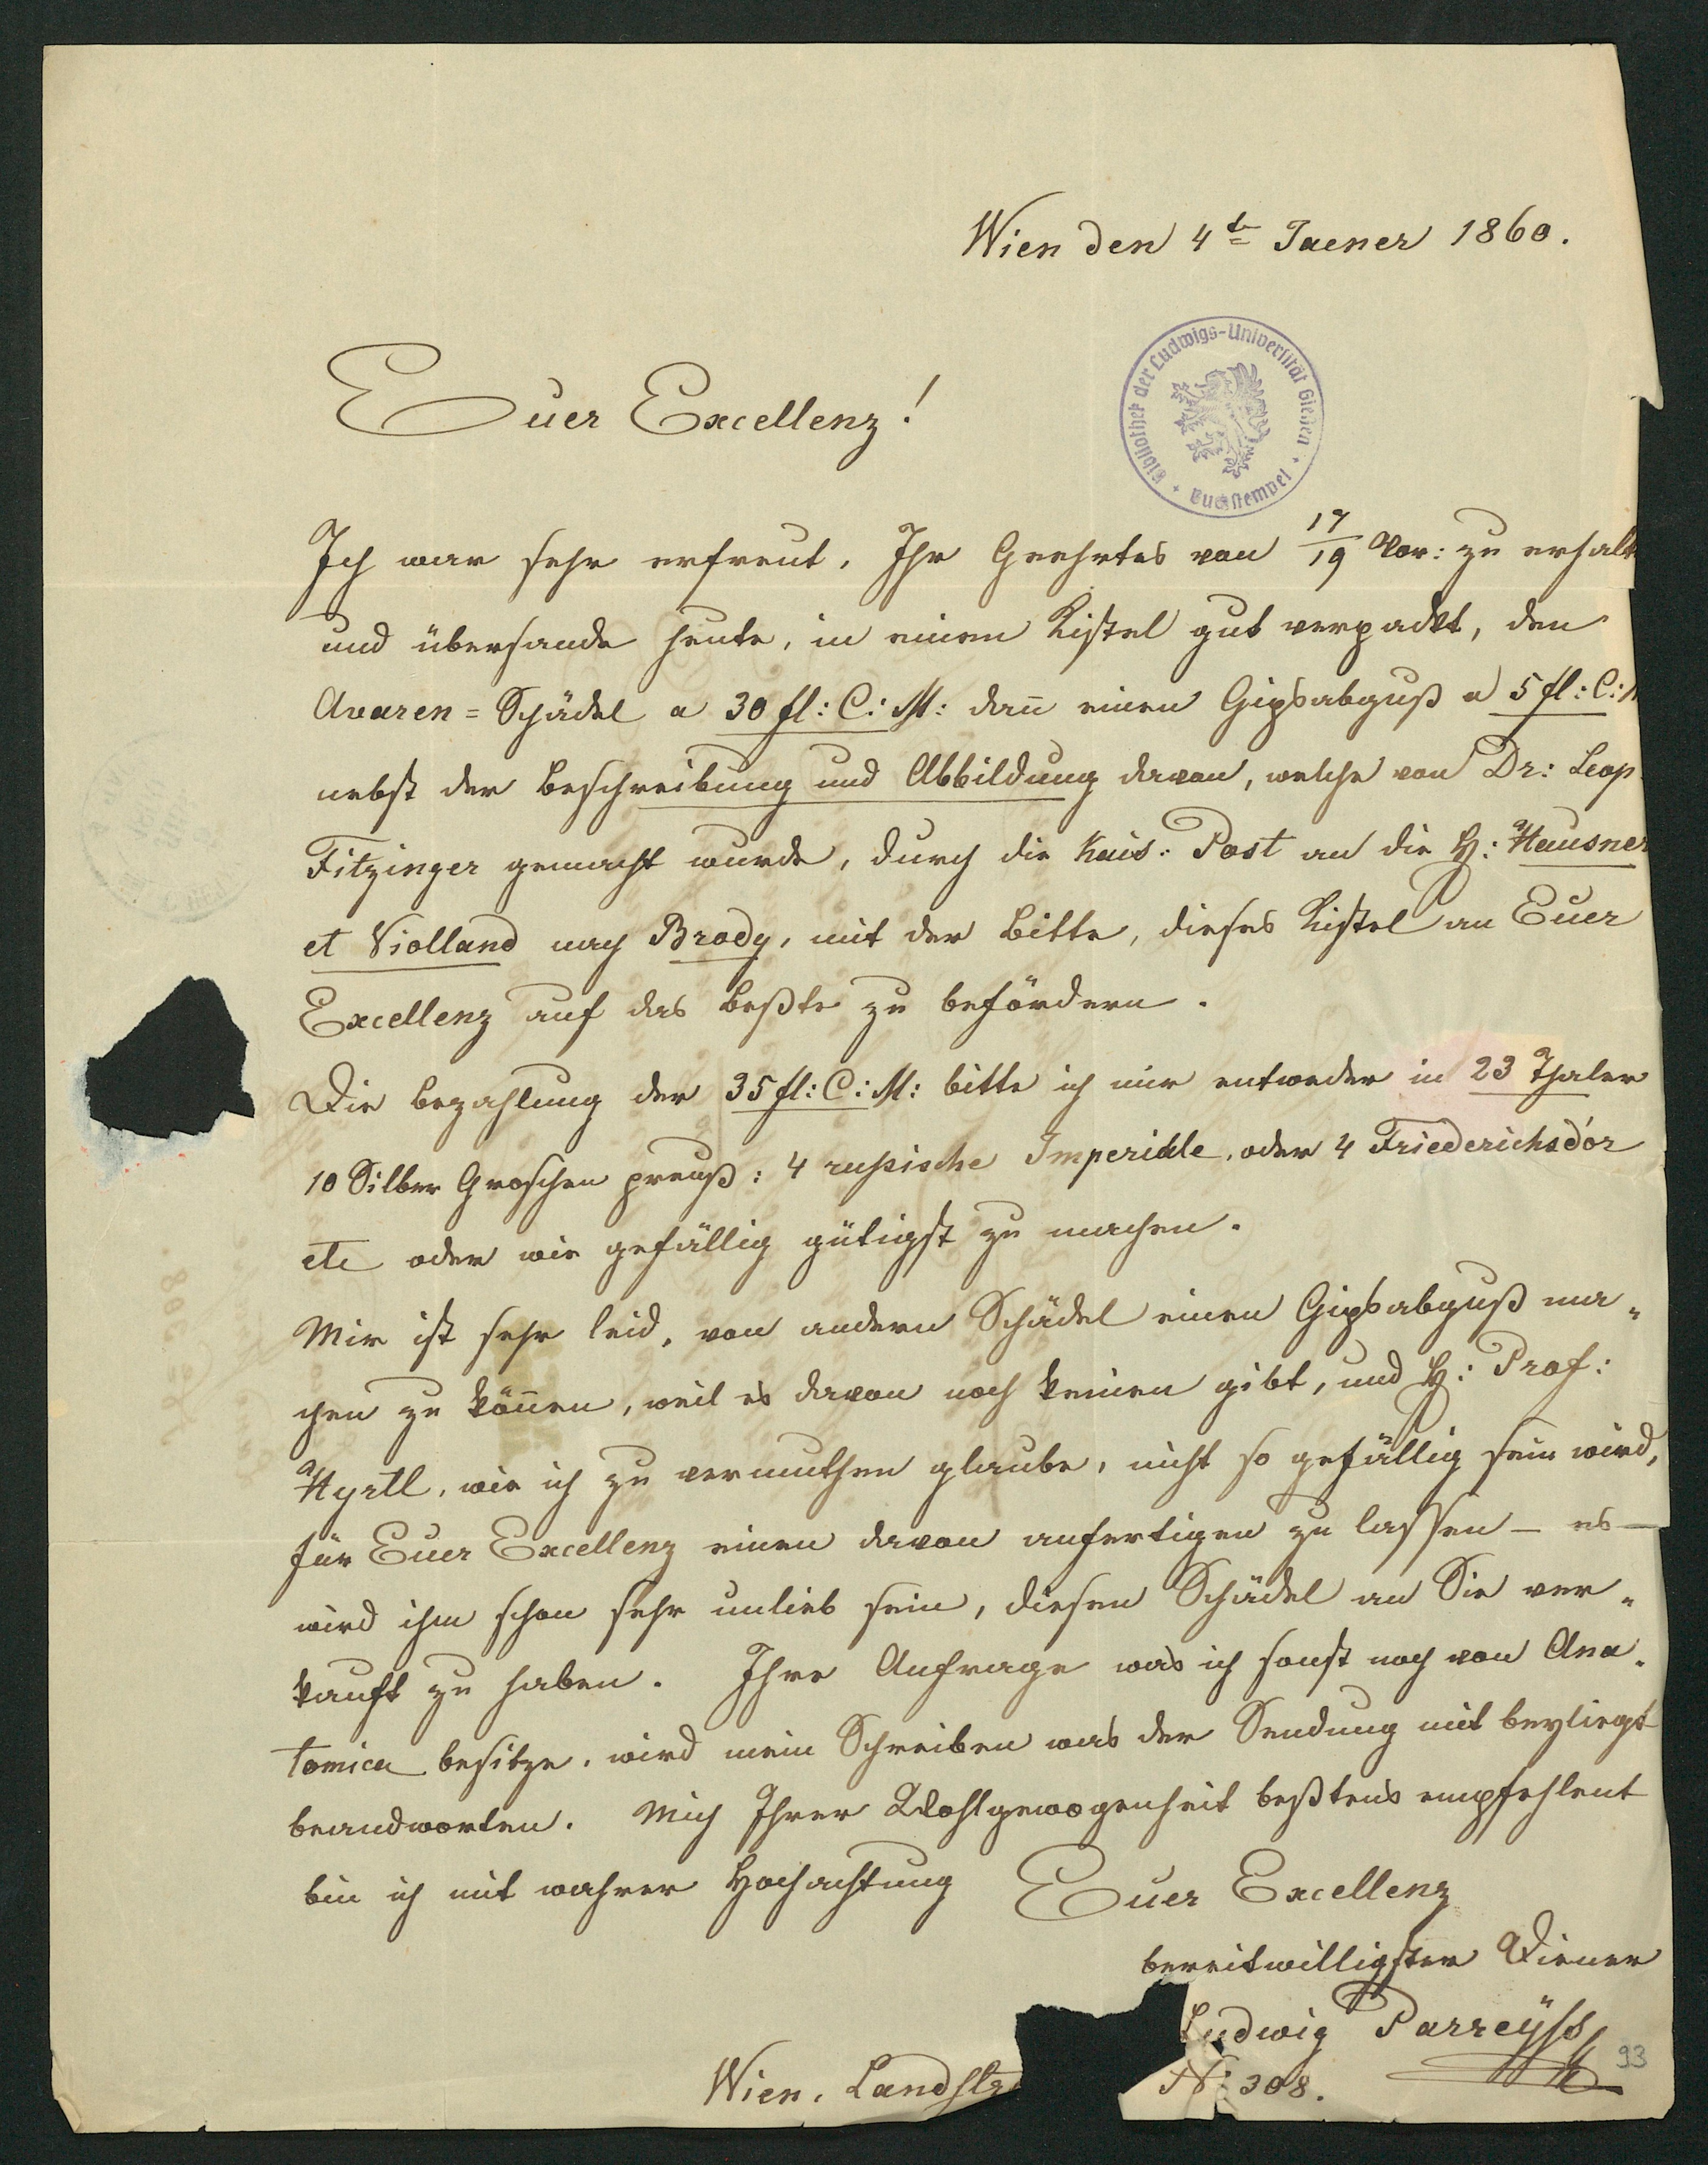 Wien den 4te Jaener 1860.
Bibliothek der Ludwigs-Universität Gießen
Buchstempel
Euer Excellenz!
Ich war sehr erfreut, Ihr Geehrtes von 17/19 Nov: zu erhalt
und übersande heute, in einen Kistel gut verpackt, den
Avaren=Schädel a 30 fl: C: M: dañ einen Gipsabguß a 5 fl: C: M
nebst der Beschreibung und Abbildung davon, welche von Dr: Leop
Fitzinger gemacht wurde, durch die Kais: Post an die H: Hausner
et Violland nach Brody, mit der Bitte, dieses Kistel an Euer
Excellenz auf das Beßte zu befördern.
Die Bezahlung der 35 fl: C: M: bitte ich mir entweder in 23 Thaler
10 Silber Groschen preuß: 4 russische Imperiale, oder 4 Friederichsd'or
etc oder wie gefällig gütigst zu machen.
Mir ist sehr leid, von andern Schädel einen Gipsabguß ma=
chen zu köñen, weil es davon noch keinen gibt, und H: Prof:
Hyrtl, wie ich zu vermuthen glaube, nicht so gefällig sein wird,
für Euer Excellenz einen davon anfertigen zu lassen – es –
wird ihm schon sehr unlieb sein, diesen Schädel an Sie ver=
kauft zu haben. Ihre Anfrage was ich sonst noch von Ana=
tomica besitze, wird mein Schreiben was der Sendung mit beyliegt
beandworten. Mich Ihrer Wohlgewogenheit beßtens empfehlent
bin ich mit wahrer Hochachtung Euer Excellenz
bereitwilligster Diener
Ludwig Parreyss
Wien, Landstr N: 308.
93